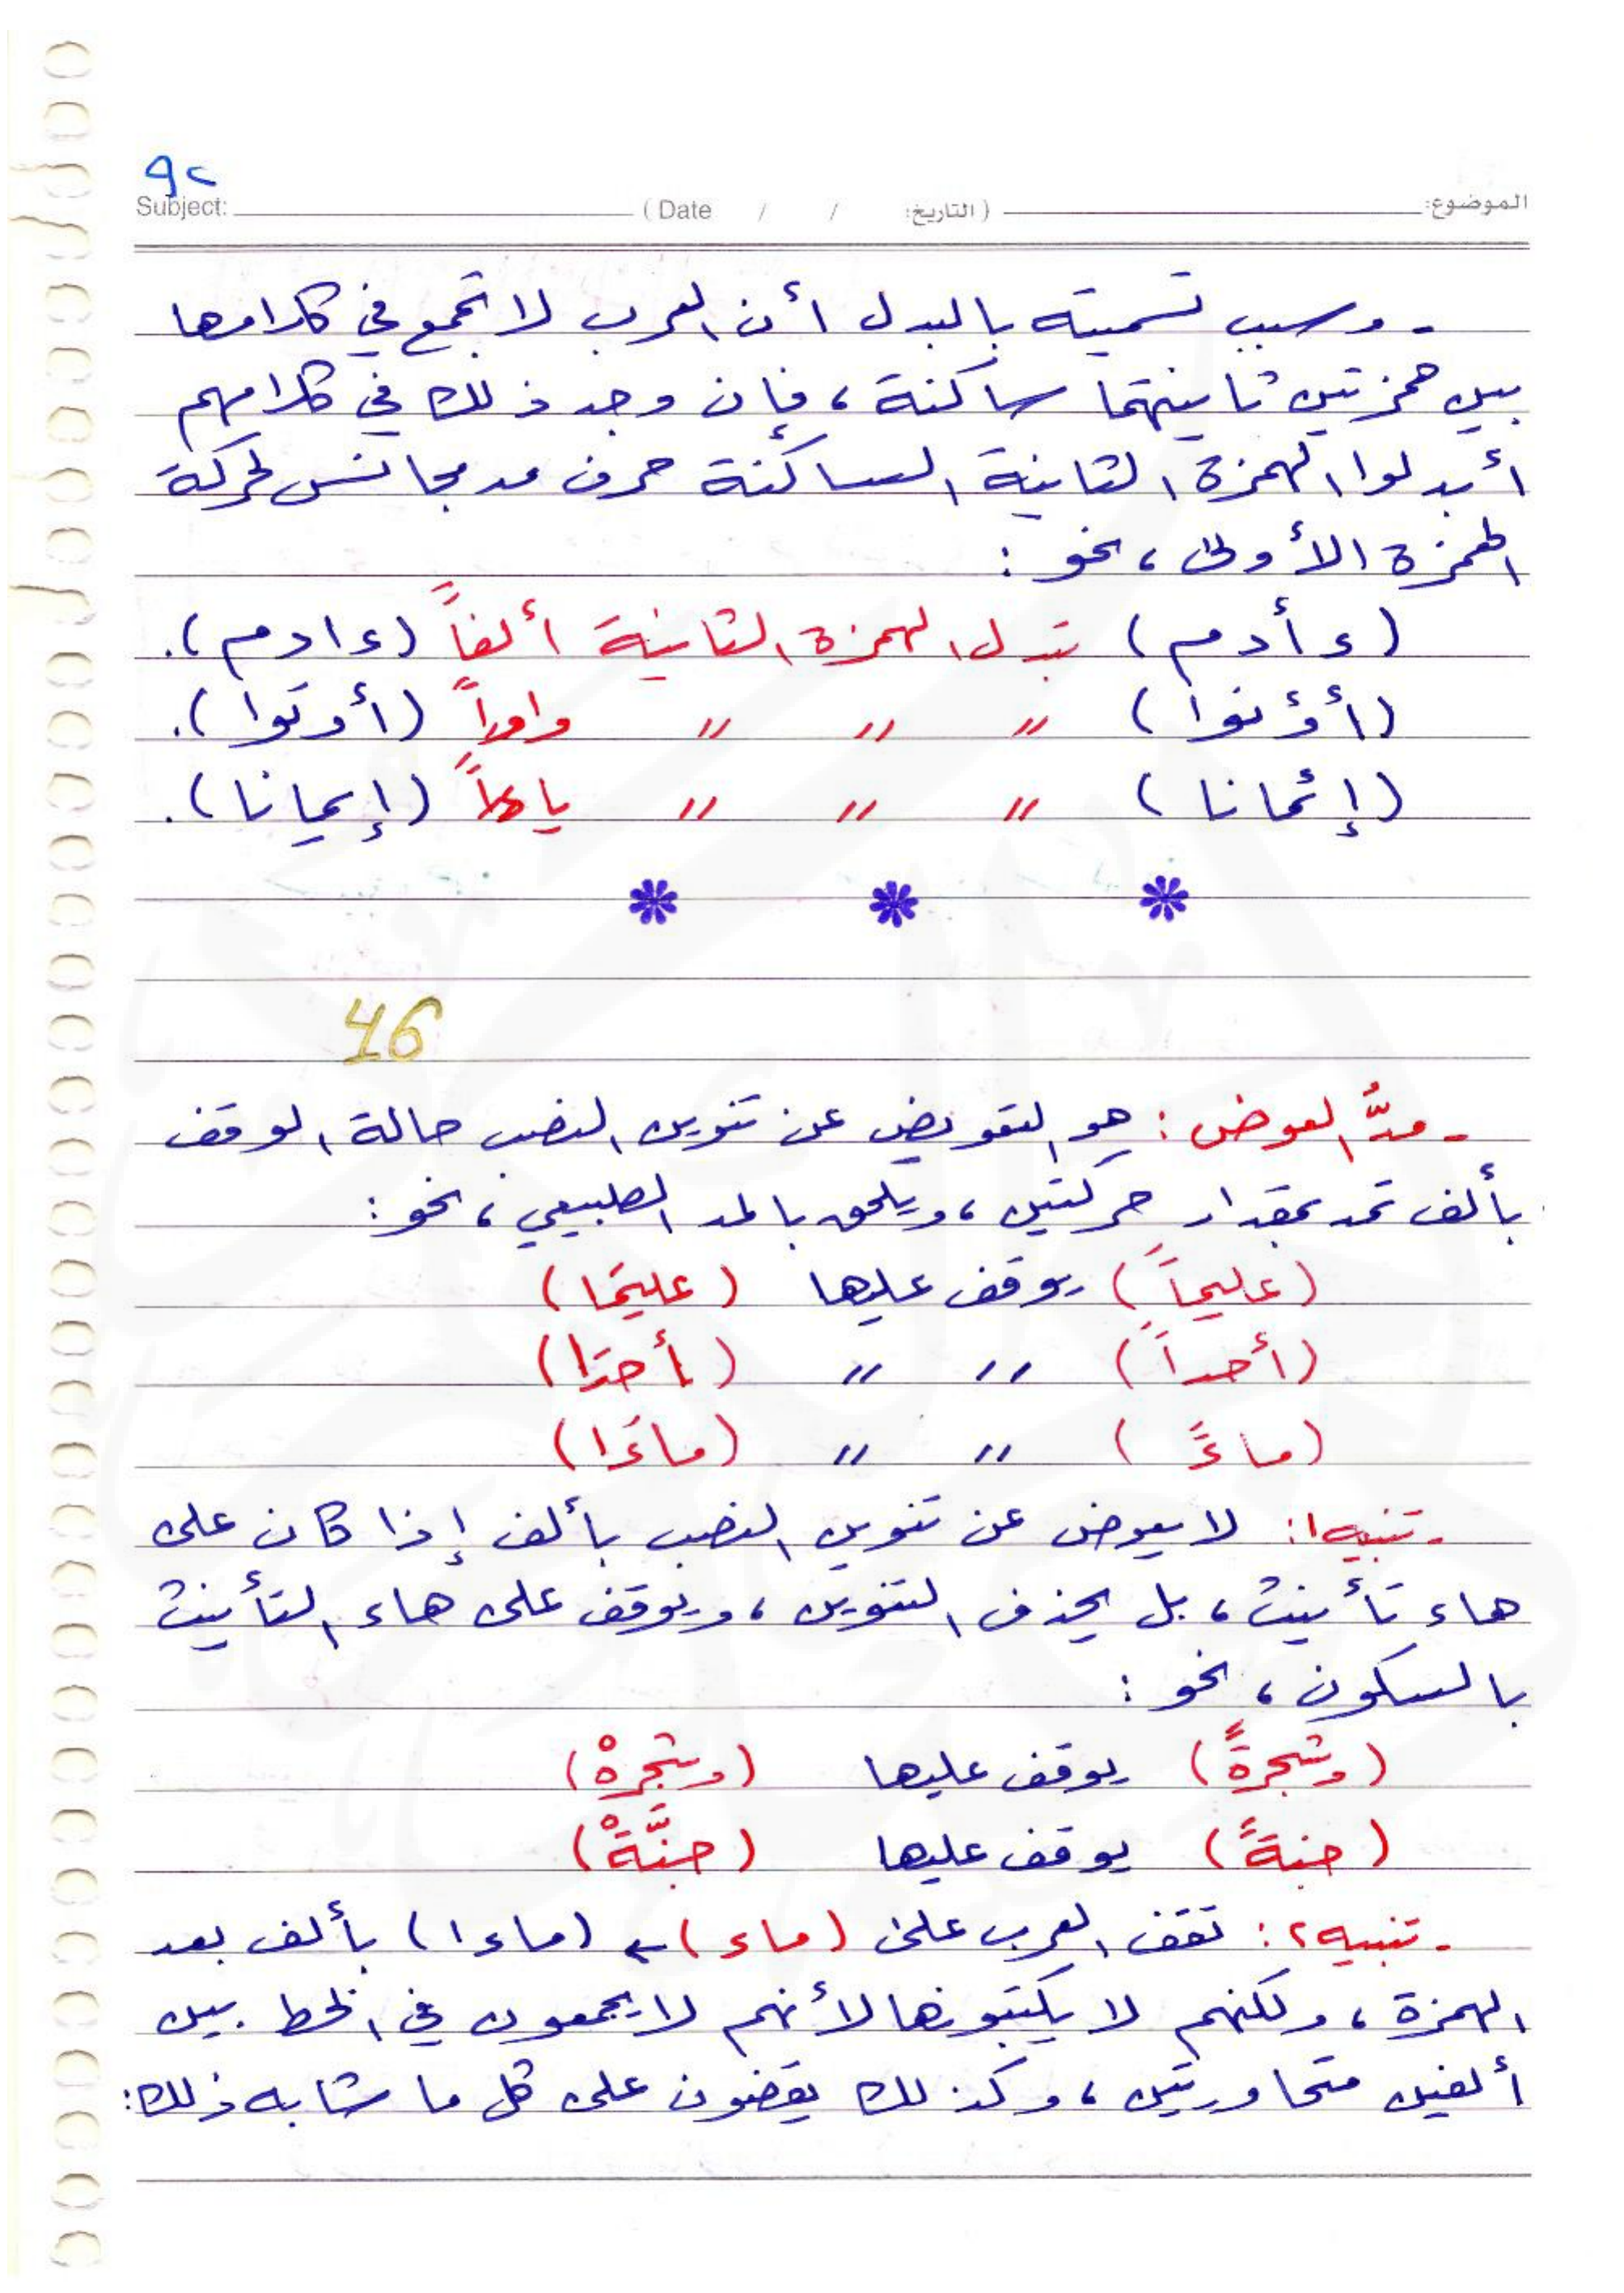 ٩٢
Subject: ( Date / / التاريخ: ) الموضوع:
- وسبب تسميته بالبدل أن العرب لا تجمع في كلامها
بين همزتين ثانيتهما ساكنة، فإن وجد ذلك في كلامهم
أبدلوا الهمزة الثانية الساكنة حرف مد مجانس لحركة
الهمزة الأولى، نحو:
(ءأدم) تبدل الهمزة الثانية ألفاً (ءادم).
(أؤتوا) " " " واواً (أوتوا).
(إئمانا) " " " ياءاً (إيمانا).
* * *
46
- مدُّ العوض: هو التعويض عن تنوين النصب حالة الوقف
بألف تمد بمقدار حركتين، ويلحق بالمد الطبيعي، نحو:
(عليماً) يوقف عليها (عليمَا)
(أحداً) " " (أحدَا)
(ماءً) " " (ماءَا)
- تنبيه١: لا يعوض عن تنوين النصب بألف إذا كان على
هاء تأنيث، بل يحذف التنوين، ويوقف على هاء التأنيث
بالسكون، نحو:
(وشجرةً) يوقف عليها (وشجرهْ)
(جنةً) يوقف عليها (جنَّةْ)
- تنبيه٢: تقف العرب على (ماء) ← (ماءا) بألف بعد
الهمزة، ولكنهم لا يكتبونها لأنهم لا يجمعون في الخط بين
ألفين متجاورتين، وكذلك يقضون على كل ما شابه ذلك: